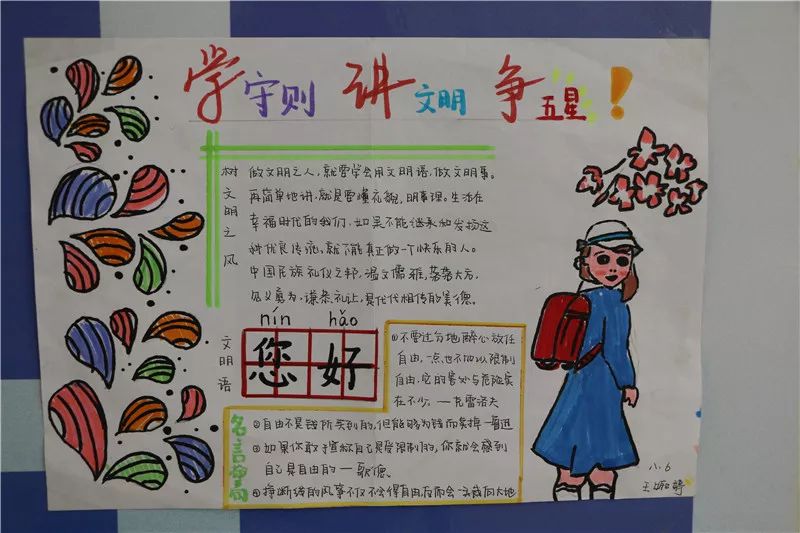 学守则 讲文明 争五星！
树文明之风
做文明之人，就要学会用文明语，做文明事。
再简单地讲，就是要懂礼貌，明事理。生活在
幸福时代的我们，如果不能继承和发扬这
种优良传统，就不能真正做一个快乐的人。
中国民族礼仪之邦，温文儒雅，落落大方，
见义勇为，谦恭礼让，是代代相传的美德。
文明语
nín hǎo
您好
①不要过分地醉心放任
自由，一点也不加以限制
自由，它的害处与危险实
在不少。—克雷洛夫
名言警句
②自由不是钱所买到的，但能够为钱而卖掉—鲁迅
③如果你敢于宣称自己是受限制的，你就会感到
自己是自由的—歌德。
④挣断线的风筝不仅不会得自由，反而会一头栽向大地
八.6